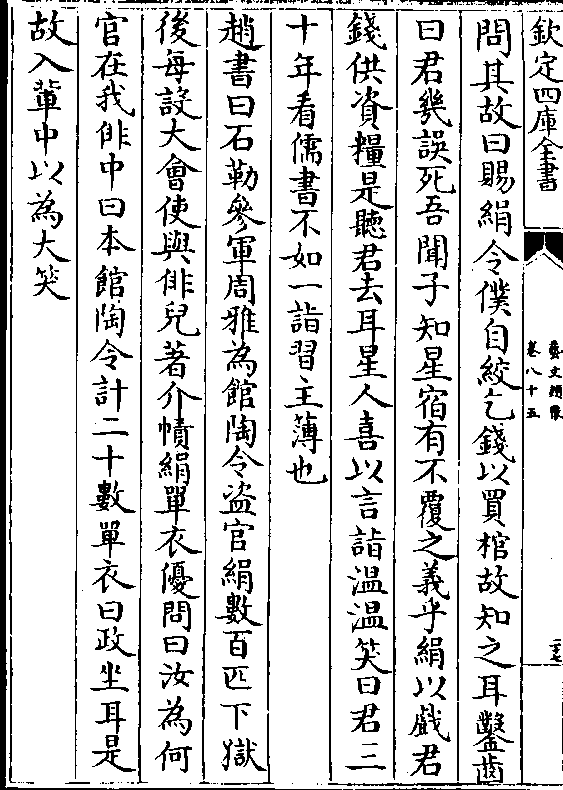 欽定四庫全書
藝文類聚
卷八十五
二十七
問其故曰賜絹令僕自絞乞錢以買棺故知之耳鑿齒
曰君幾誤死吾聞子知星宿有不覆之義乎絹以戲君
錢供資糧是聽君去耳星人喜以言詣溫溫笑曰君三
十年看儒書不如一詣習主薄也
趙書曰石勒參軍周雅為館陶令盜官絹數百匹下獄
後每設大會使與俳兒著介幘絹單衣優問曰汝為何
官在我俳中曰本館陶令計二十數單衣曰政坐耳是
故入輩中以為大笑